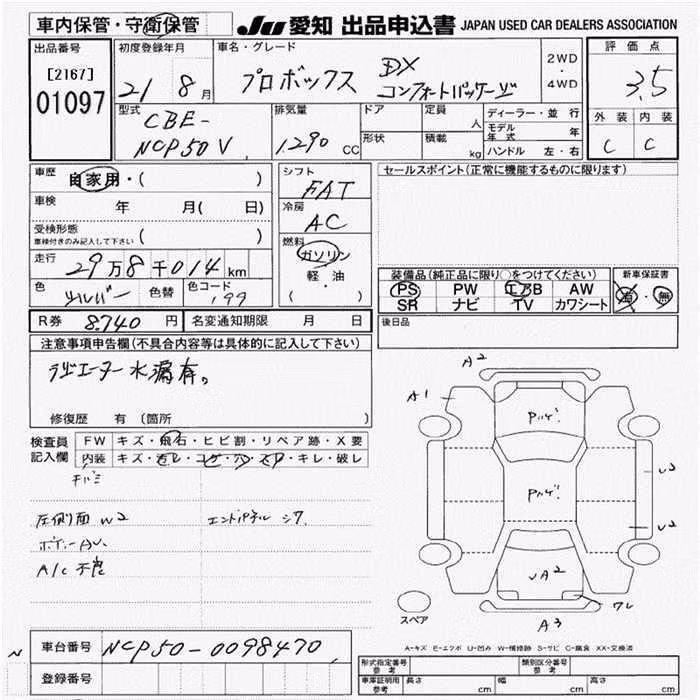 車内保管・守衛保管
JU 愛知 出品申込書 JAPAN USED CAR DEALERS ASSOCIATION
出品番号
[2167]
01097
初度登録年月
21 8月
車名・グレード
プロボックス DX
コンフォートパッケージ
2WD
・
4WD
評価点
3.5
外装 内装
C C
型式
CBE-
NCP50V
排気量
1,290 CC
ドア
形状
定員
人
積載
kg
ディーラー・並行
モデル年式 年
ハンドル 左・右
車歴 自家用・( )
車検 年 月( 日)
受検形態
車検付きのみ記入して下さい ( )
走行 29万8千014km
色 シルバー 色替 色コード 199
シフト
FAT
冷房
AC
燃料
ガソリン
軽・油
( )
セールスポイント(正常に機能するものに限ります)
装備品(純正品に限り○をつけてください)
PS PW エアB AW
SR ナビ TV カワシート
新車保証書
有・無
R券 8,740 円 名変通知期限 月 日
後日品
注意事項申告欄(不具合内容等は具体的に記入して下さい)
ラジエーター水漏有。
修復歴 有 (箇所 )
検査員
記入欄
FW キズ・飛石・ヒビ割・リペア跡・X要
内装 キズ・汚レ・コゲ・穴・スレ・キレ・破レ
圧側面 W2 エンドパネル シワ
A/C不良
A2
A1
U2
U2
A2
ワレ
A3
スペア
A-キズ E-エクボ U-凹み W-補修跡 S-サビ C-腐食 XX-交換済
車台番号 NCP50-0098470
登録番号
形式指定番号
参考
類別区分番号
参考
車庫証明用
参考
長さ cm 幅 cm 高さ cm